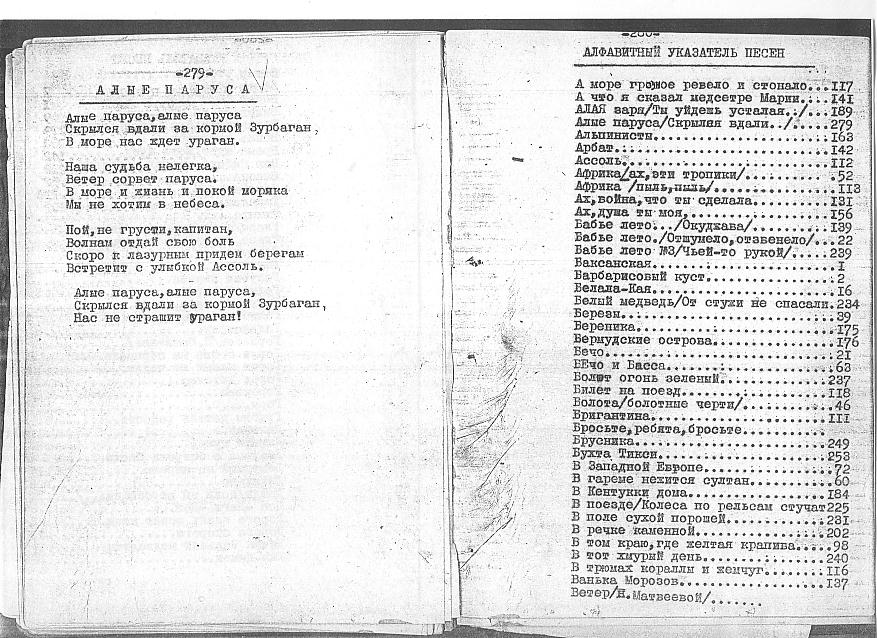 -279-
АЛЫЕ ПАРУСА
Алые паруса,алые паруса
Скрылся вдали за кормой Зурбаган,
В море нас ждет ураган.
Наша судьба нелегка,
Ветер сорвет паруса.
В море и жизнь и покой моряка
Мы не хотим в небеса.
Пой,не грусти,капитан,
Волнам отдай свою боль
Скоро к лазурным придем берегам
Встретит с улыбкой Ассоль.
Алые паруса,алые паруса,
Скрылся вдали за кормой Зурбаган,
Нас не страшит ураган!
-280-
АЛФАВИТНЫЙ УКАЗАТЕЛЬ ПЕСЕН
А море громое ревело и стонало...117
А что я сказал медсетре Марии....141
АЛАЯ заря/Ты уйдешь усталая../....189
Алые паруса/Скрылая вдали../.....279
Альпинисты.......................163
Арбат............................142
Ассоль...........................112
Африка/ах,эти тропики/...........52
Африка /пыль,пыль/...............113
Ах,война,что ты сделала..........131
Ах,душа ты моя,..................156
Бабье лето.../Окуджава/..........139
Бабье лето./Отшумело,отзвенело/..22
Бабье лето №3/Чьей-то рукой/.....239
Баксанская.......................1
Барбарисовый куст................2
Белала-Кая.......................16
Белый медведь/От стужи не спасали.234
Березы...........................39
Вереника.........................175
Бермудские острова...............176
Бечо.............................21
БЕчо и Басса.....................63
Болшт огонь зеленый..............237
Билет на поезд...................118
Болота/болотные черти/...........46
Бригантина.......................111
Бросьте,ребята,бросьте...........
Брусника.........................249
Бухта Тикси......................253
В Западной Европе................72
В гареме нежится султан..........60
В Кентукки дома..................184
В поезде/Колеса по рельсам стучат225
В поле сухой порошей.............231
В речке каменной.................202
В том краю,где желтая крапива....98
В тот хмурый день................240
В трюмах кораллы и жемчуг........116
Ванька Морозов...................137
Ветер/Н.Матвеевой/.......